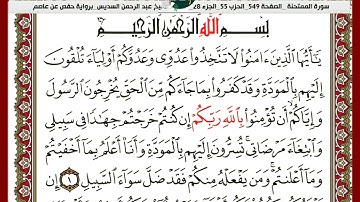 سورة الممتحنة_الصفحة 549_الحزب 55_الجزء 28 الشيخ عبد الرحمن السديس_برواية حفص عن عاصم
بِسْمِ اللَّهِ الرَّحْمَٰنِ الرَّحِيمِ
يَٰٓأَيُّهَا الَّذِينَ ءَامَنُوا لَا تَتَّخِذُوا عَدُوِّى وَعَدُوَّكُمْ أَوْلِيَآءَ تُلْقُونَ
إِلَيْهِم بِالْمَوَدَّةِ وَقَدْ كَفَرُوا بِمَا جَآءَكُم مِّنَ الْحَقِّ يُخْرِجُونَ الرَّسُولَ
وَإِيَّاكُمْ أَن تُؤْمِنُوا بِاللَّهِ رَبِّكُمْ إِن كُنتُمْ خَرَجْتُمْ جِهَٰدًا فِى سَبِيلِى
وَابْتِغَآءَ مَرْضَاتِى تُسِرُّونَ إِلَيْهِم بِالْمَوَدَّةِ وَأَنَا۠ أَعْلَمُ بِمَآ أَخْفَيْتُمْ
وَمَآ أَعْلَنتُمْ وَمَن يَفْعَلْهُ مِنكُمْ فَقَدْ ضَلَّ سَوَآءَ السَّبِيلِ ١